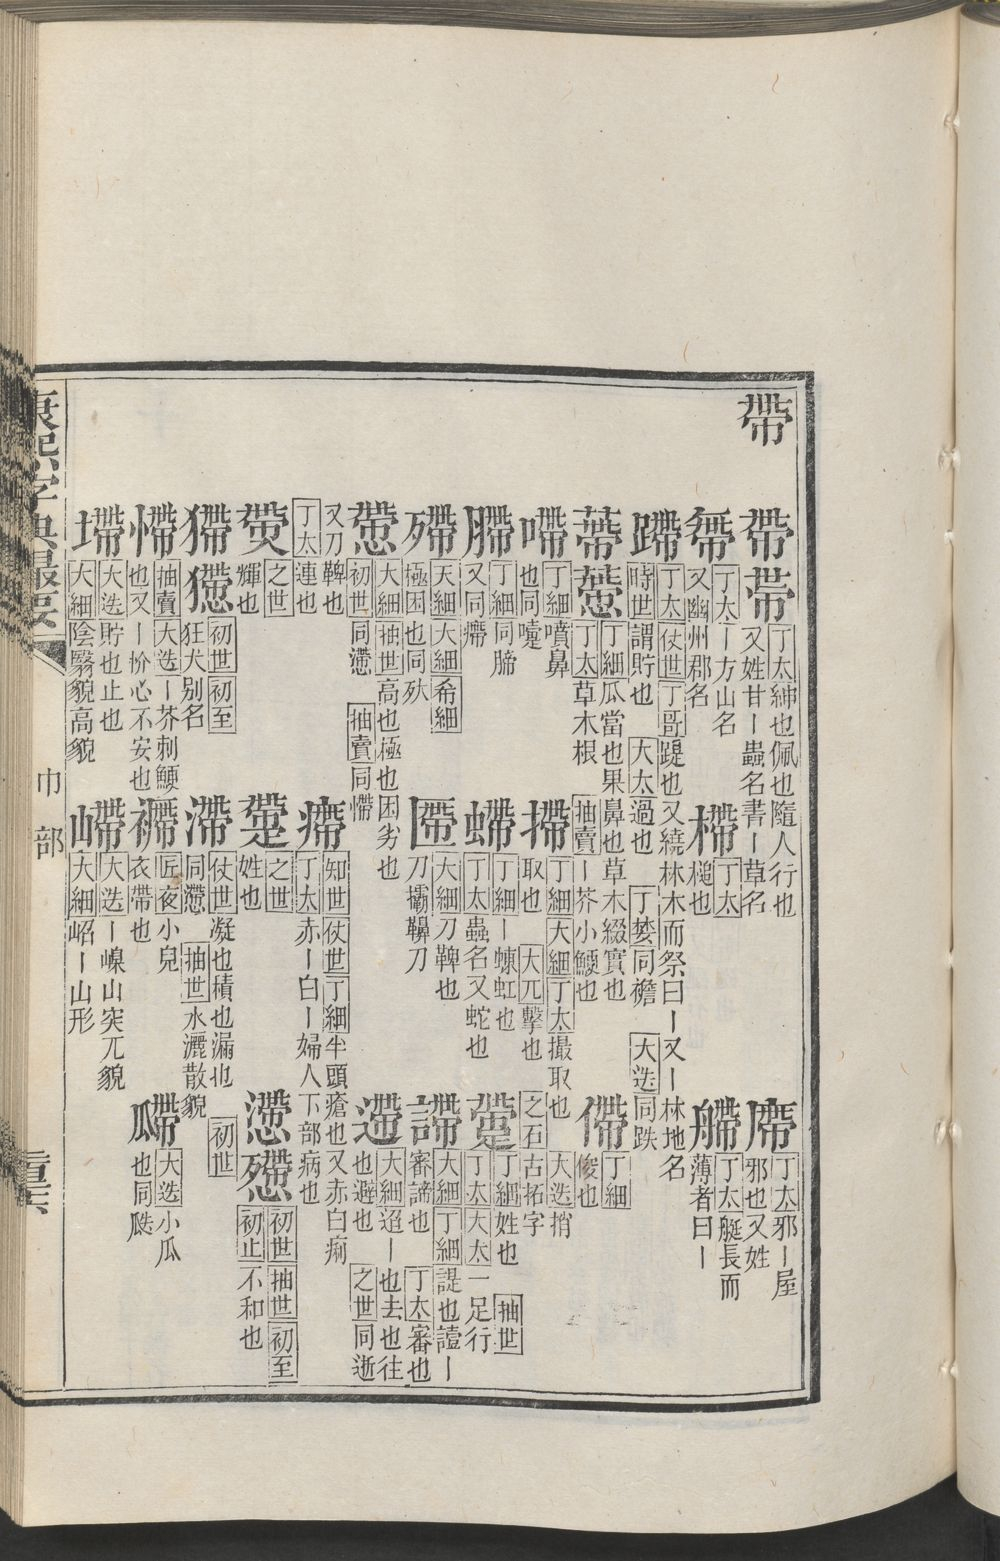 帶
帶 帯 丁太 紳也佩也隨人行也
又姓甘〡蟲名書〡草名
廗 丁太 邪〡屋
邪也又姓
丁太 〡方山名
又幽州郡名
㯂 丁太
槌也
艜 丁太 艇長而
薄者曰〡
蹛 丁太 仗世 丁哥 踶也又繞林木而祭曰〡又〡林地名
時世 謂貯也 大太 過也 丁婪 同襜 大迭 同跌
蔕 丁細 瓜當也果鼻也草木綴實也
丁太 草木根 抽賣 〡芥小鯁也
僀 丁細
俊也
嚔 丁細 噴鼻
也同嚏
摕 丁細 大細 丁太 撮取也 大迭 捎
取也 大兀 擊也 之石 古拓字
丁細 同腣
又同癠
螮 丁細 〡蝀虹也
丁太 蟲名又蛇也
丁細 姓也 抽世
丁太 大太 一足行
殢 天細 大細 希細
極困也同殀
大細 刀鞞也
刀靶鞞刀
諦 大細 丁細 諟也譩〡
審諦也 丁太 審也
懘 大細 抽世 高也極也困劣也
初世 同懘 抽賣 同懘
遰 大細 迢〡也去也往
也避也 之世 同逝
又刀鞞也
丁太 連也
瘹 知世 仗世 丁細 牛頭瘡也又赤白痢
丁太 赤〡白〡婦人下部病也
之世
輝也
之世
姓也
懘 初世 抽世 初至
初止 不和也
初世 初至
狂犬别名
滯 仗世 凝也積也漏也 初世
同懘 抽世 水灑散貌
㦅 抽賣 大迭 〡芥刺鯁
也又〡忦心不安也
匠夜 小兒
衣帶也
大迭 小瓜
也同瓞
墆 大迭 貯也止也
大細 陰翳貌高貌
嵽 大迭 〡嵲山突兀貌
大細 岹〡山形
康熙字典撮要
巾部